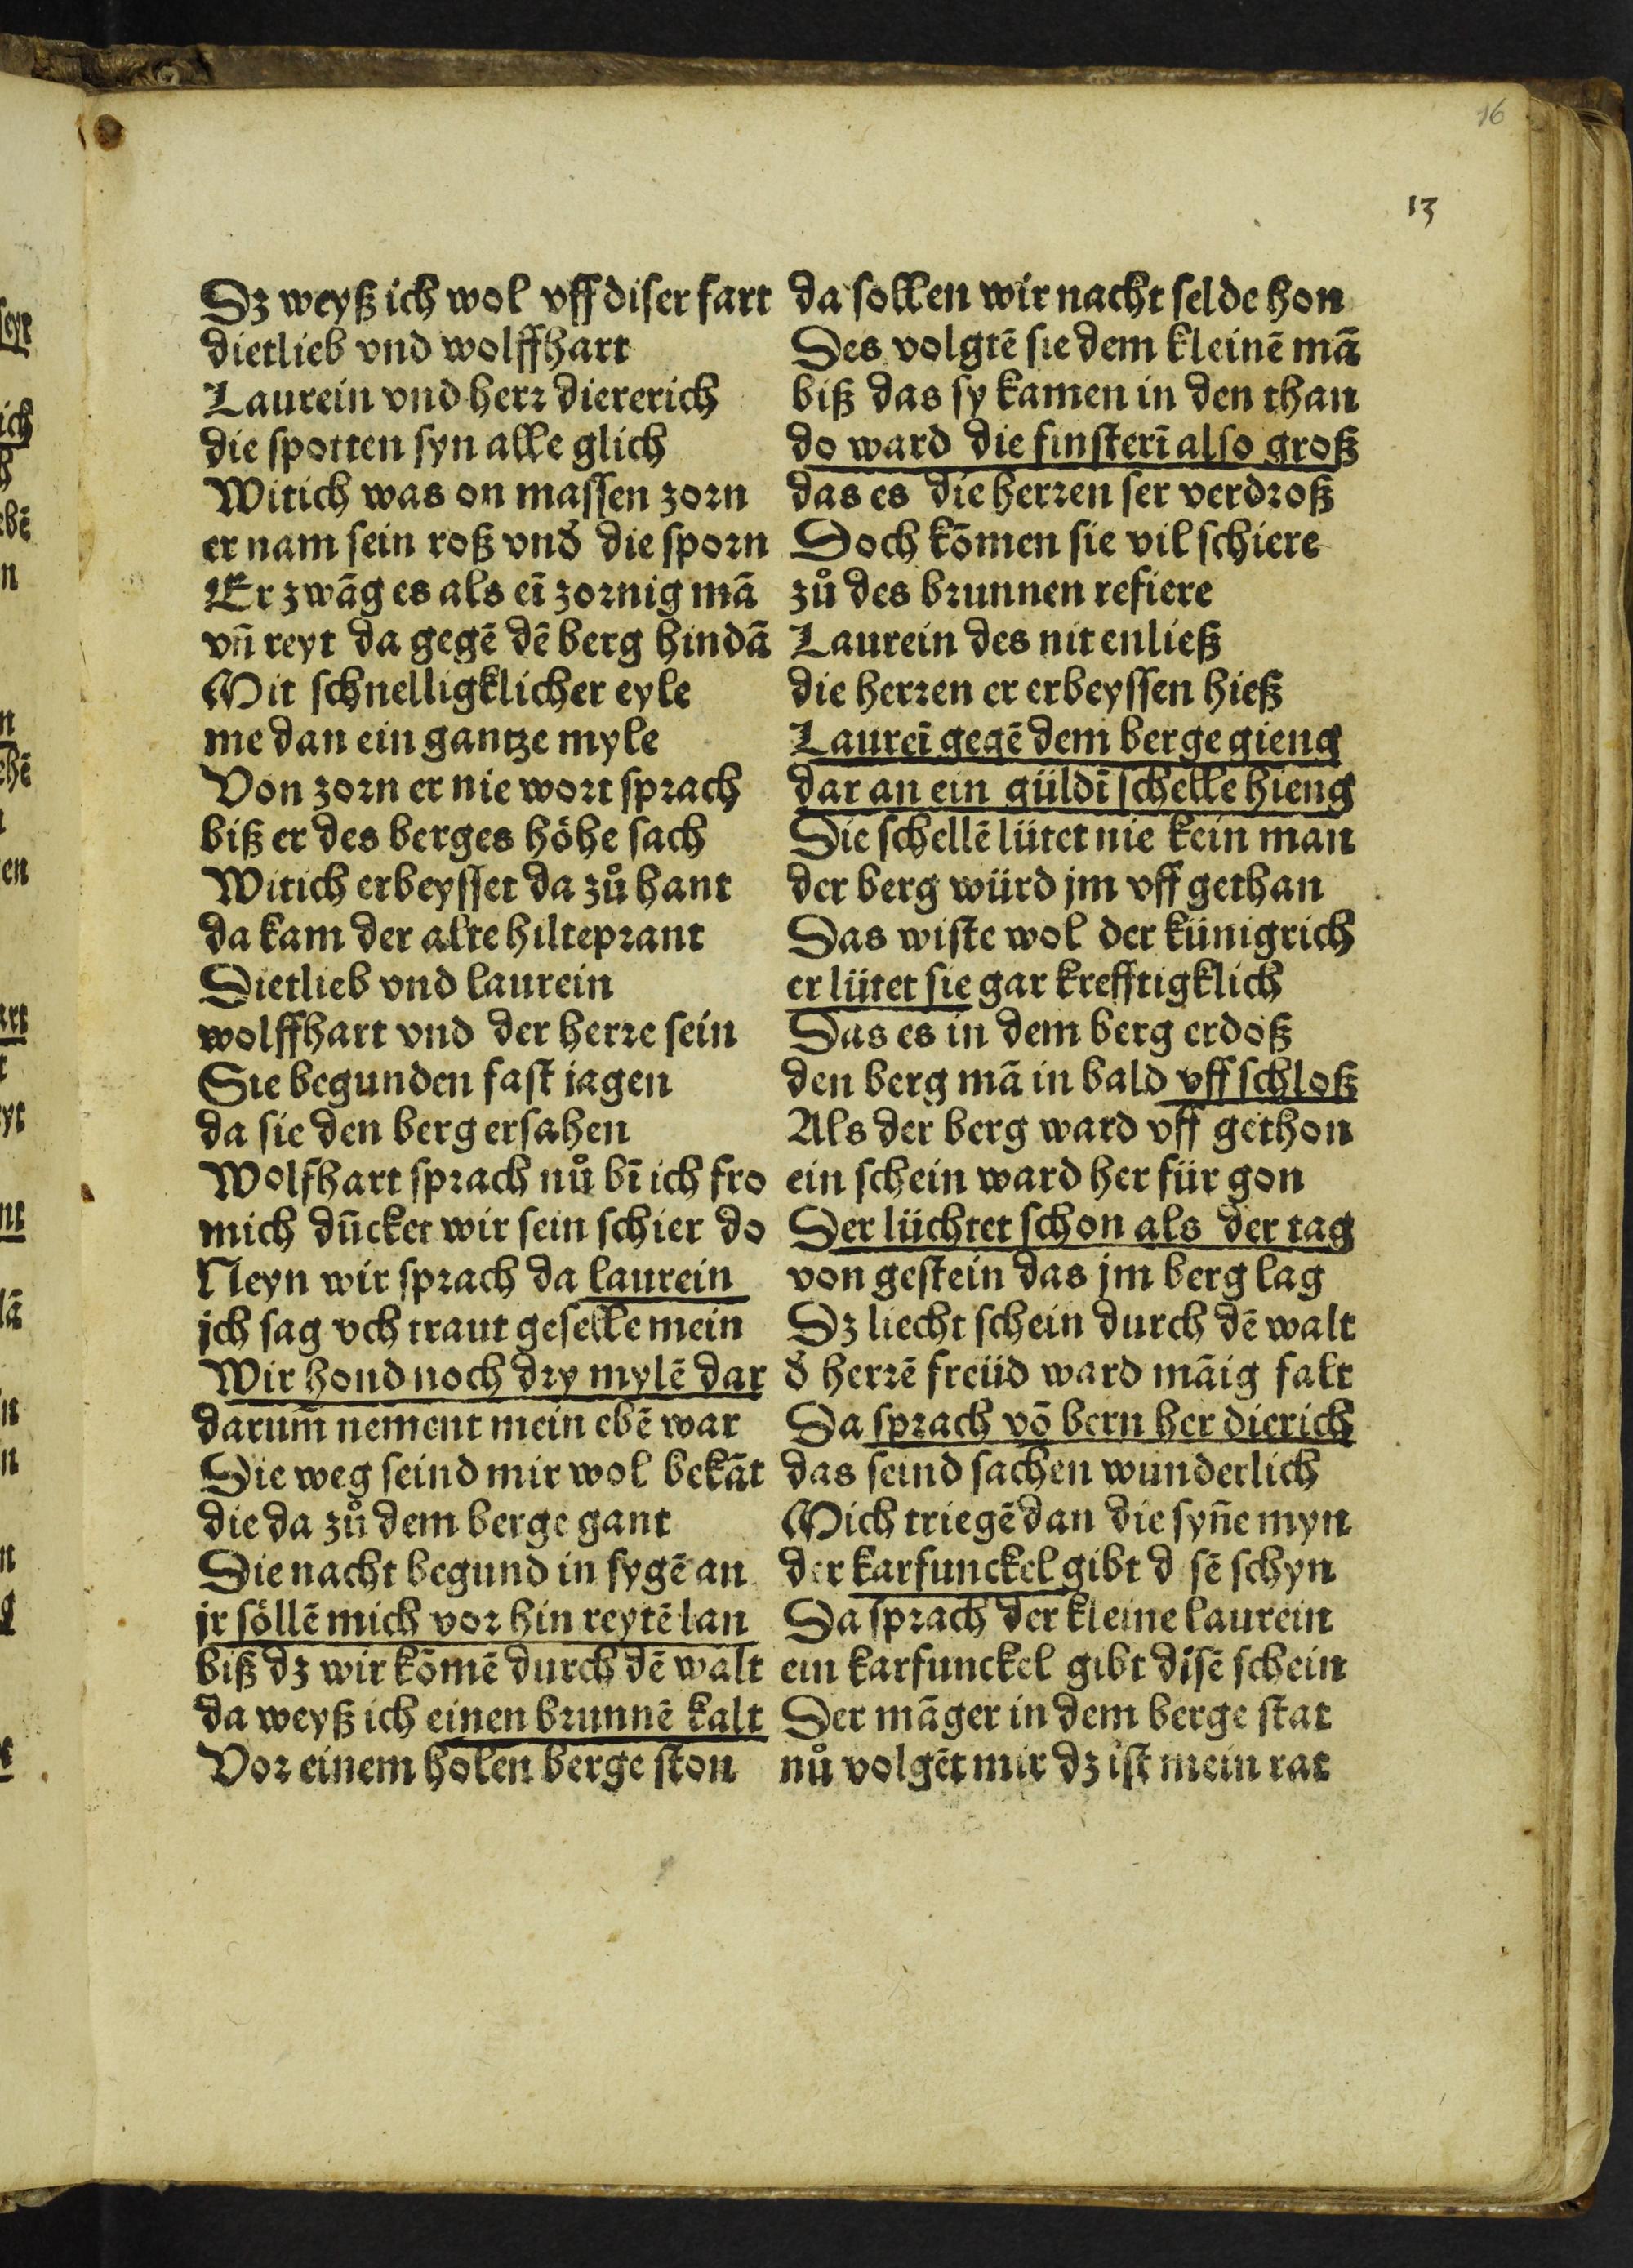 16
13
Dz weyß ich wol vff diser fart
dietlieb vnd wolffhart
Laurein vnd herr diererich
die spotten syn alle glich
Witich was on massen zorn
er nam sein roß vnd die sporn
Er zwāg es als eī zornig mā
vn̄ reyt da gegē dē berg hindā
Mit schnelligklicher eyle
me dan ein gantze myle
Von zorn er nie wort sprach
biß er des berges höhe sach
Witich erbeysset da zů hant
da kam der alte hilteprant
Dietlieb vnd laurein
wolffhart vnd der herre sein
Sie begunden fast iagen
da sie den berg ersahen
Wolfhart sprach nů bī ich fro
mich dūcket wir sein schier do
Neyn wir sprach da laurein
jch sag vch traut geselle mein
Wir hond noch dry mylē dar
darum̄ nement mein ebē war
Die weg seind mir wol bekāt
die da zů dem berge gant
Die nacht begund in sygē an
jr söllē mich vor hin reytē lan
biß dz wir kōmē durch dē walt
da weyß ich einen brunnē kalt
Vor einem holen berge ston
da sollen wir nacht selde hon
Des volgtē sie dem kleinē mā
biß das sy kamen in den than
do ward die finsterī also groß
das es die herren ser verdroß
Doch kōmen sie vil schiere
zů des brunnen refiere
Laurein des nit enließ
die herren er erbeyssen hieß
Laureī gegē dem berge gieng
dar an ein güldī schelle hieng
Die schellē lütet nie kein man
der berg würd jm vff gethan
Das wiste wol der künigrich
er lütet sie gar krefftigklich
Das es in dem berg erdoß
den berg mā in bald vff schloß
Als der berg ward vff gethon
ein schein ward her für gon
Der lüchtet schon als der tag
von gestein das jm berg lag
Dz liecht schein durch dē walt
d̕ herrē freüd ward māig falt
Da sprach vō bern her dierich
das seind sachen wunderlich
Mich triegē dan die syn̄e myn
der karfunckel gibt d sē schyn
Da sprach der kleine laurein
ein karfunckel gibt disē schein
Der māger in dem berge stat
nů volgēt mir dz ist mein rat